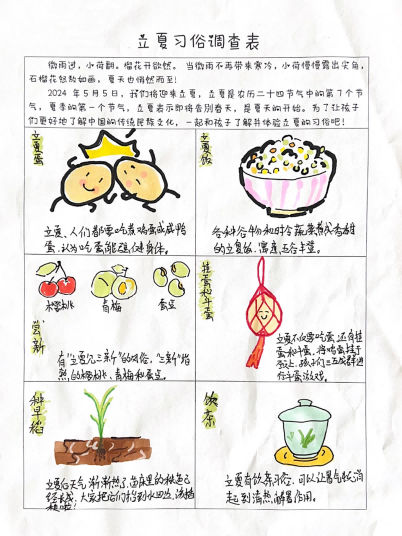 立夏习俗调查表
微雨过，小荷翻。榴花开欲然。 当微雨不再带来寒冷，小荷慢慢露出尖角，
石榴花怒放如画，夏天也悄然而至！
2024 年 5 月 5 日，我们将迎来立夏，立夏是农历二十四节气中的第 7 个节
气，夏季的第一个节气，立夏表示即将告别春天，是夏天的开始。为了让孩子
们更好地了解中国的传统民族文化，一起和孩子了解并体验立夏的习俗吧！
立夏蛋
立夏，人们都要吃煮鸡蛋或咸鸭
蛋，认为吃蛋能强健身体。
立夏饭
各种谷物和时令蔬菜蒸成香甜
的立夏饭，寓意五谷丰登。
樱桃 青梅 蚕豆
尝新
有“立夏见三新”的风俗，“三新”指
然的樱桃、青梅和蚕豆。
挂蛋和斗蛋
立夏不仅要吃蛋，还有挂
蛋和斗蛋，将鸡蛋挂于
颈上，孩子们三五成群进
行斗蛋游戏。
种早稻
立夏后天气渐渐热了，苗床里的秧苗已
经长成，大家把它们插到水田边，该插
秧啦！
饮茶
立夏有饮茶习俗，可以让暑气抵消
起到清热、解暑作用。